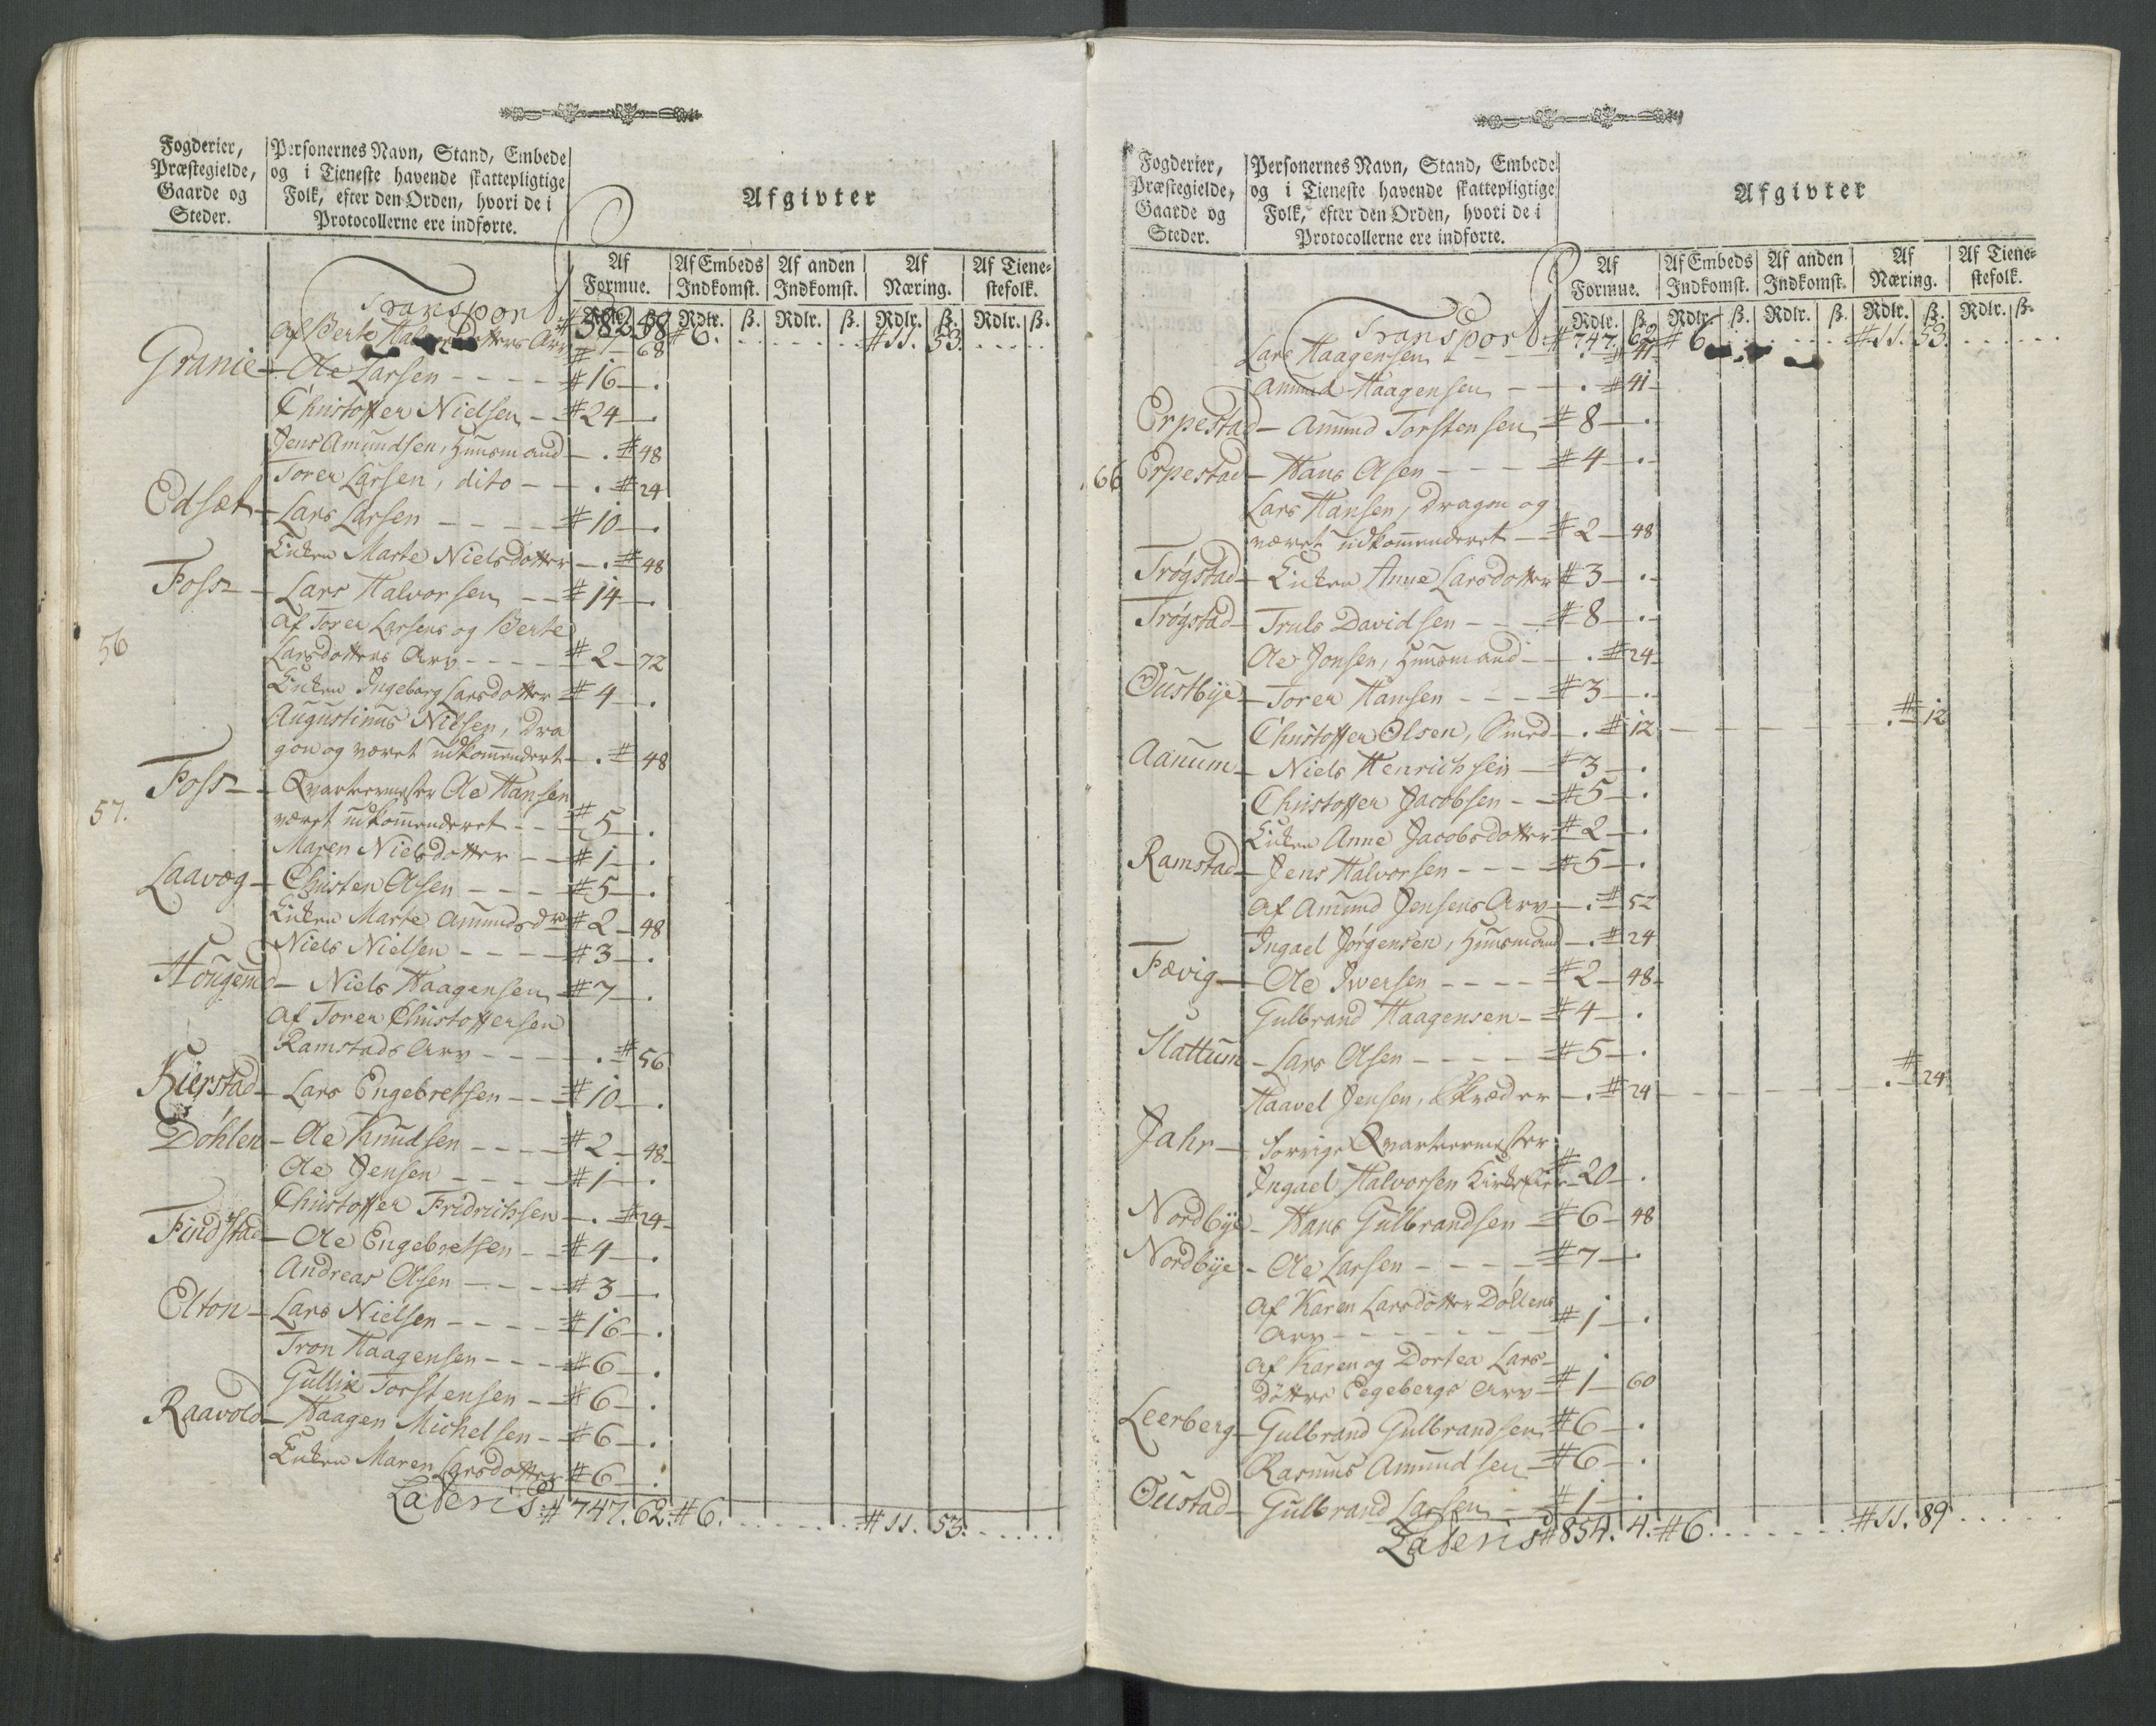 Fogderier, Præstegielde, Gaarde og Steder.
Personernes Navn, Stand, Embede og i Tieneste havende skattepligtige Folk, efter den Orden, hvori de i Protocollerne ere indførte.
Afgivter
Af Formue. Af Embeds Indkomst. Af anden Indkomst. Af Næring. Af Tienestefolk.
Rdlr. ß. Rdlr. ß. Rdlr. ß. Rdlr. ß.
Transport # 582. 58 # 6. # 11. 53.
Af Berte Arv # 1 - 68
Granie - Ole Larsen - - - - # 16 - .
Christoffer Nielsen - # 24 - .
Jens Amundsen, Huusmand - . # 48
Torer Larsen, dito - - . # 24
Edsæt - Lars Larsen - - - - # 10 - .
Enken Marte Nielsdotter - . # 48
Foss - Lars Halvorsen - - # 14 - .
Af Torer Larsens og Berte
56
Larsdotters Arv - - - - # 2 - 72
Enken Ingeborg Larsdotter # 4 - .
Augustinus Nilsen, Dra
gon og været udkommendert - . # 48
Foss - Qvarteermester Ole Hansen
57.
været udkommenderet - - # 5 - .
Maren Nielsdotter - - # 1 - .
Laavæg - Christen Olsen - - - # 5 - .
Enken Marte Amundsdr # 2 - 48
Niels Nielsen - - - - # 3 - .
Hougen - Niels Haagensen # 7 - .
Af Torer Christoffersen
Ramstads Arv - - - - . # 56
Kierstad - Lars Engebretsen - - # 10 - .
Döhlen - Ole Knudsen - - - - # 2 - 48
Ole Jensen - - - - # 1 - .
Christoffer Fridrichsen - . # 24
Findstad - Ole Engebretsen - - # 4 - .
Andreas Olsen - - - - # 3 - .
Elton - Lars Nielsen - - - - # 16 - .
Tron Haagensen - - - # 6 - .
Gullik Torstensen - - # 6 - .
Raavold - Haagen Michelsen - # 6 - .
Enken Maren Larsdotter # 6 - .
Lateris: # 747. 62. # 6. # 11. 53.
Fogderier, Præstegielde, Gaarde og Steder.
Personernes Navn, Stand, Embede og i Tieneste havende skattepligtige Folk, efter den Orden, hvori de i Protocollerne ere indførte.
Afgivter
Af Formue. Af Embeds Indkomst. Af anden Indkomst. Af Næring. Af Tienestefolk.
Rdlr. ß. Rdlr. ß. Rdlr. ß. Rdlr. ß. Rdlr. ß.
Transport # 747. 62 # 6. # 11. 53.
Lars Haagensen - - - . # 41
Amund Haagensen - - . # 41
Erpestad - Amund Torstensen # 8 - .
66 Erpestad - Hans Olsen - - - # 4 - .
Lars Hansen, Dragon og
været udkommenderet - # 2 - 48
Trøgstad - Enken Anne Larsdotter # 3 - .
Trøgstad - Truls Davidsen - - - # 8 - .
Ole Jonsen, Huusmand - - . # 24
Oustbye - Torer Hansen - - - # 3 - .
Christoffer Olsen, Smed - . # 12 - - - - . # 12
Aanum - Niels Henrichsen - # 3 - .
Christoffer Jacobsen - - # 5 - .
Enken Anne Jacobsdotter # 2 - .
Ramstad - Jens Halvorsen - - - # 5 - .
Af Amund Jensens Arv - . # 52
Ingael Jørgensen, Huusmand - . # 24
Fævig - Ole Iwersen - - - - # 2 - 48
Gulbrand Haagensen - # 4 - .
Slattum - Lars Olsen - - - - # 5 - .
Haavel Jensen, Skræder - . # 24 - - - - . # 24
Jahr - Forrige Qvarteermester
Ingael Halvorsen # 20 - .
Nordbye - Hans Gulbrandsen - # 6 - 48
Nordbye - Ole Larsen - - - - # 7 - .
Af Karen Larsdotter Döllens
Arv - - - - - - # 1 - .
Af Karen og Dortea Lars-
døttre Eegebergs Arv - # 1 - 60
Leerberg - Gulbrand Gulbrandsen # 6 - .
Rasmus Amundsen - # 6 - .
Oustad - Gulbrand Larsen - # 1 - .
Lateris # 854. 4. # 6. # 11. 89